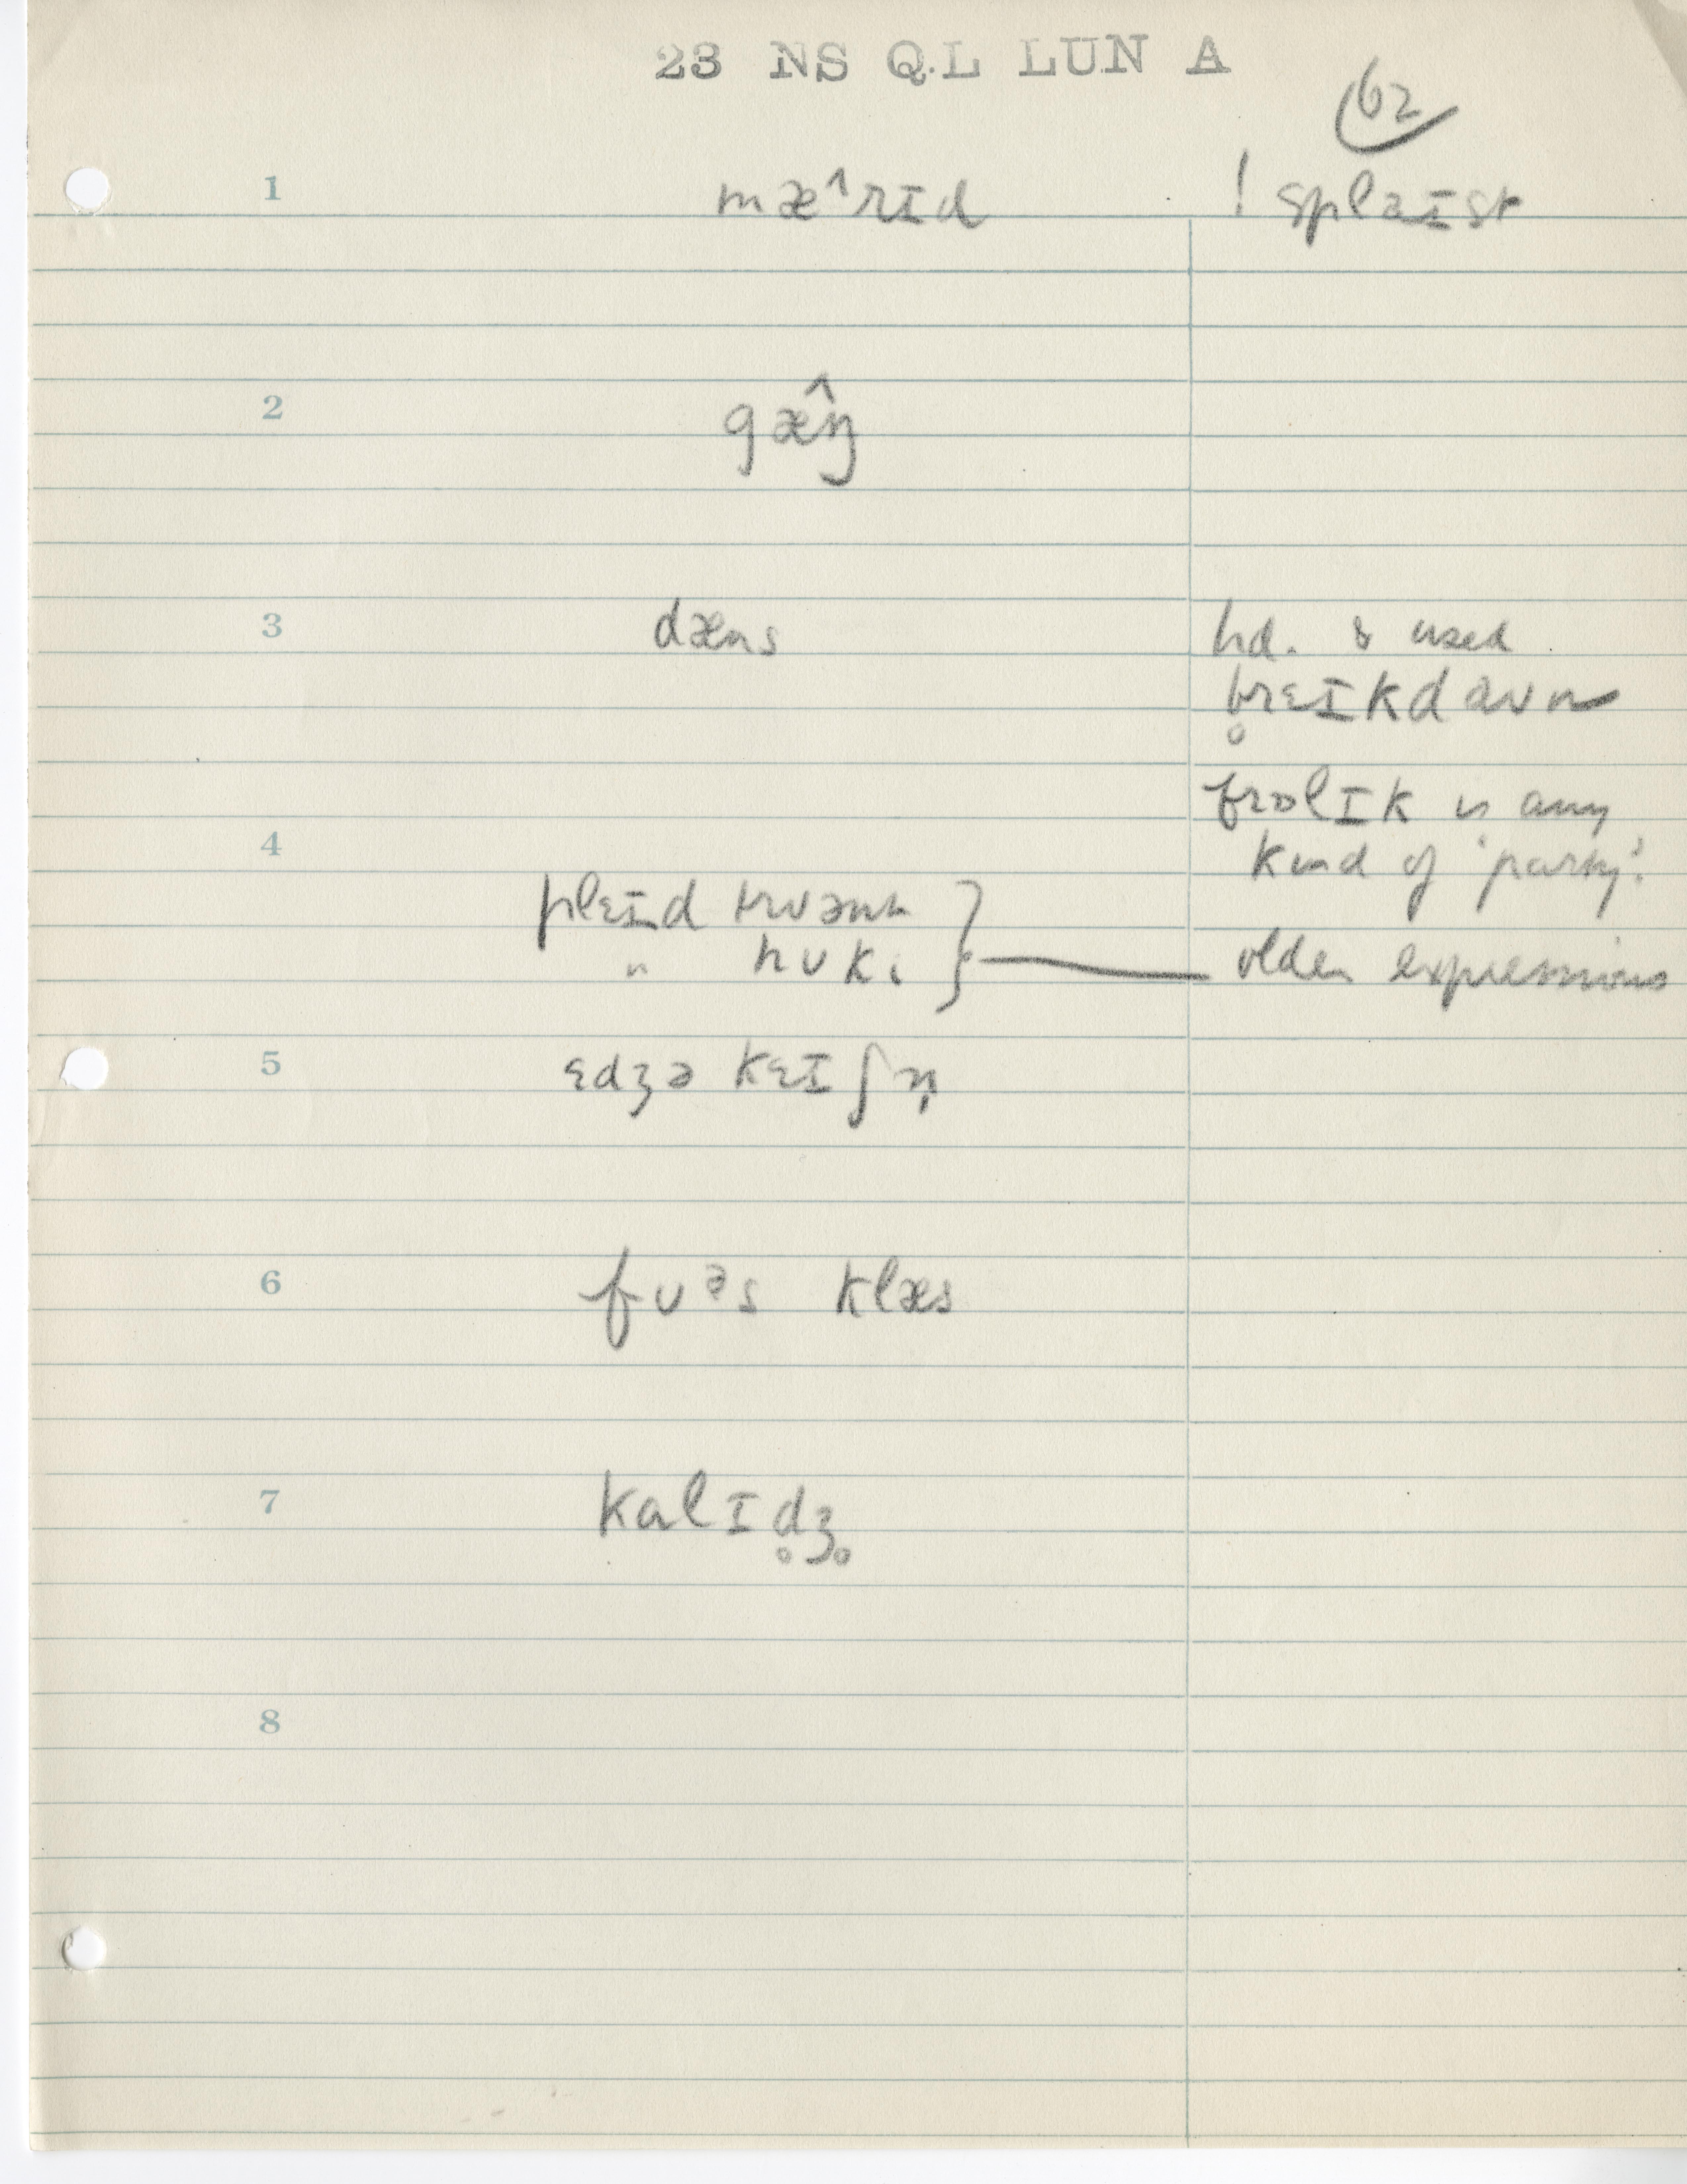 23 NS Q.L LUN A
62
1 mæ^rɪd ! splaɪst
2 gæ̂ŋ
3 dæns hd. & used
b̥rɛɪkdaʊn
frɒlɪk is any
4 kind of 'party'.
plɛɪd truənt }
" hʊki } — older expressions
5 ɛdʒəkɛɪʃn̩
6 fɜᵊs klæs
7 kalɪd̥ʒ̥
8